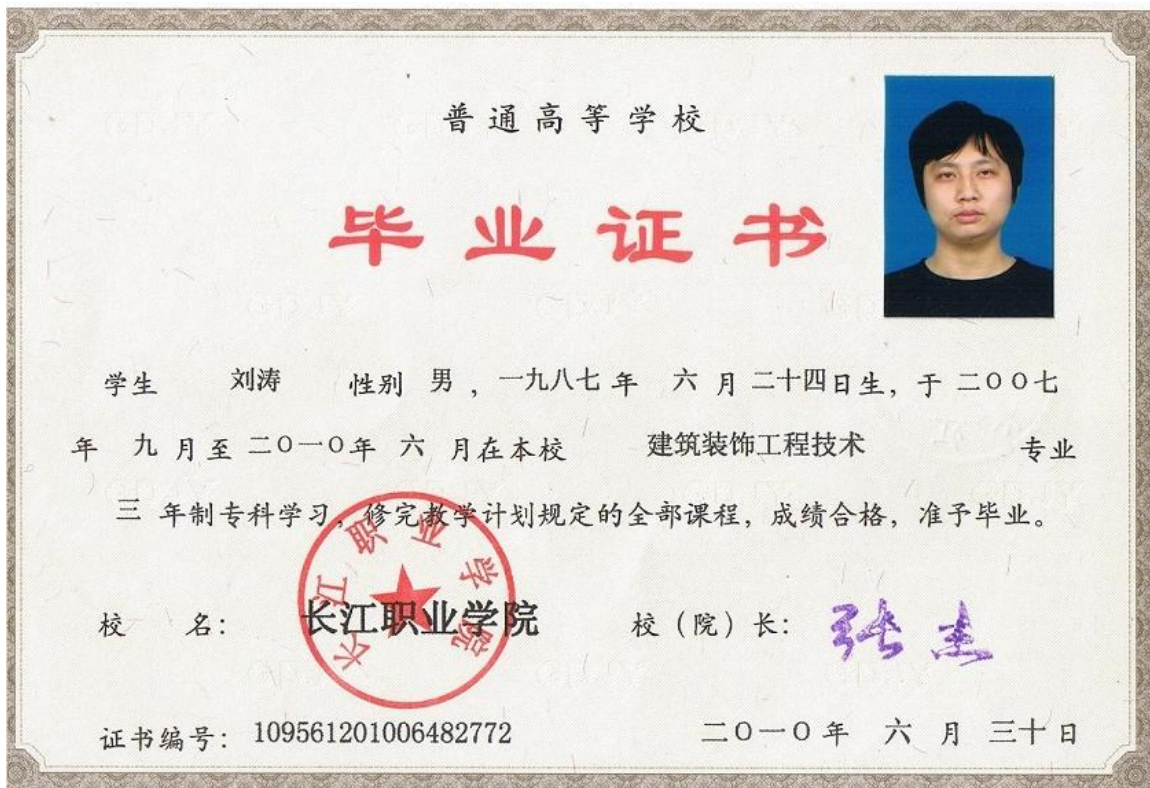 普通高等学校
毕业证书
学生 刘涛 性别 男，一九八七年 六月二十四日生，于二〇〇七
年 九月至二〇一〇年 六月在本校 建筑装饰工程技术 专业
三年制专科学习，修完教学计划规定的全部课程，成绩合格，准予毕业。
长江职业学院
校 名：长江职业学院 校（院）长：张杰
证书编号：109561201006482772 二〇一〇年 六月三十日